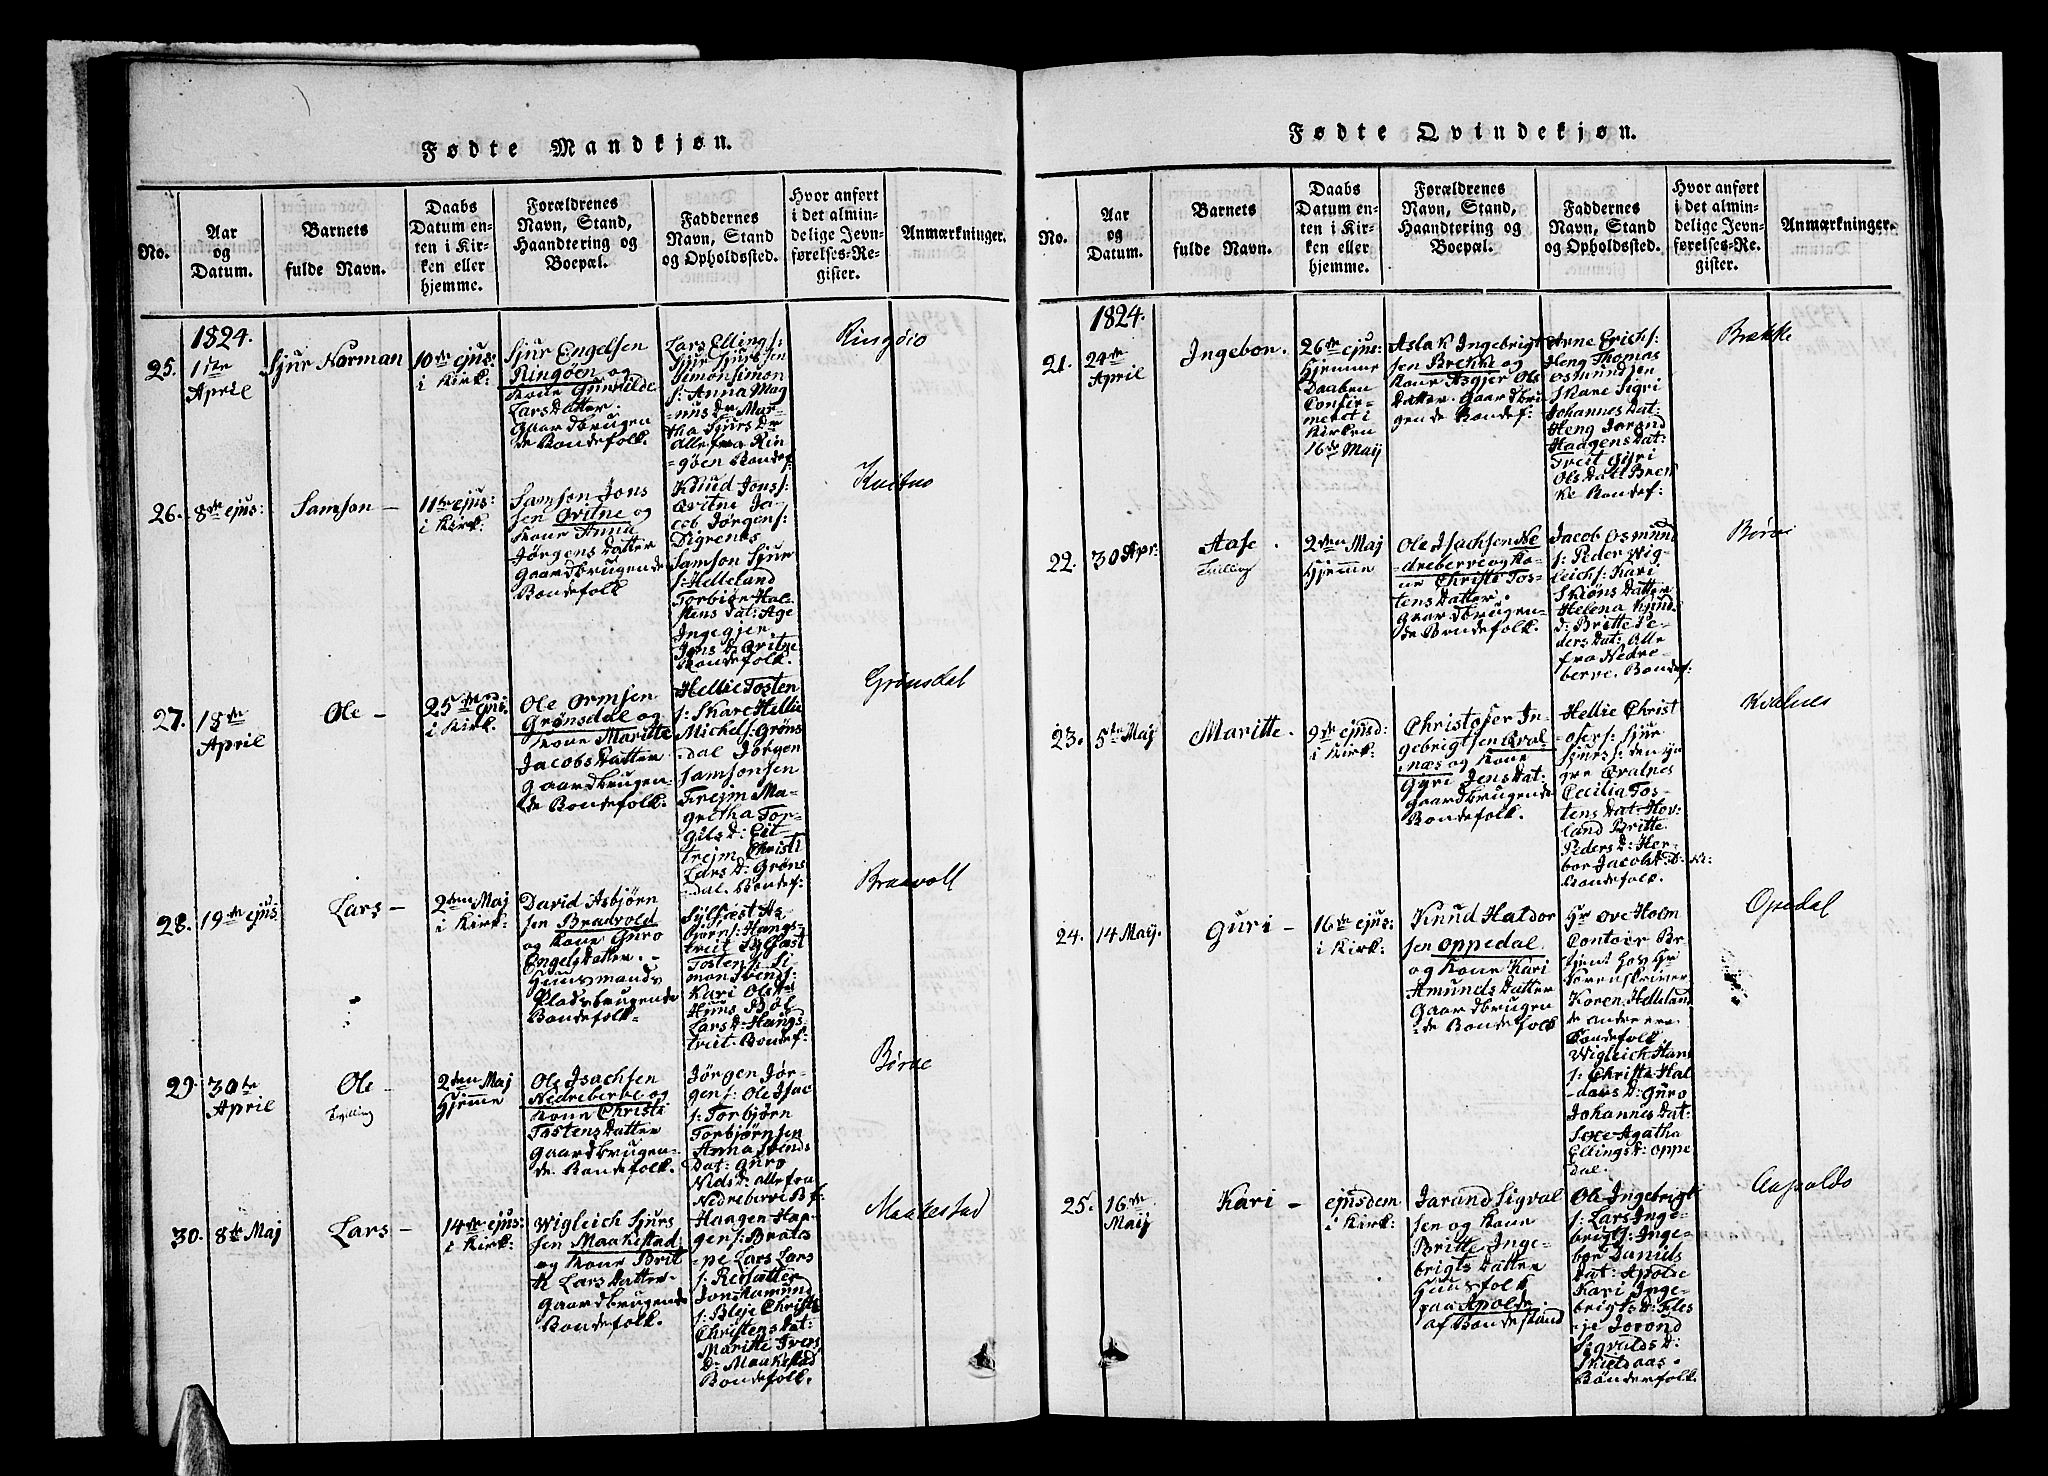 Fødte Mandkjøn.
No.
Aar
og
Datum.
Barnets
fulde Navn.
Daabs
Datum en-
ten i Kir-
ken eller
hjemme.
Forældrenes
Navn, Stand,
Haandtering og
Boepæl.
Faddernes
Navn, Stand
og Opholdssted.
Hvor anført
i det almin-
delige Jevn-
førelses-Re-
gister.
Anmærkninger.
1824.
25.
1ste
April
Sjur Norman
10de ejus:
i Kirk:
Sjur Engelsen
Ringøen og
Kone Gunnilde
LarsDatter
Gaardbrugen
de Bondefolk.
Lars Elling
Sjur Sjursen
Simon Simon
s: Anna Mag
nus Dr Mar-
tha Sjurs Dr
Alle fra Rin-
gøen Bondef:
Ringøio
26.
8de ejus:
Samson
11te ejus:
i Kirk:
Samson Jons
sen Qvitne og
Kone Anna
Jørgens Datter
Gaardbrugende
Bondefolk
Knud Jons:
Qvitne Ja-
cob Jørgens:
Digrenes
Samson Sjur
s: Helleland
Torbiør Hal-
stens Dat: Age
Ingegjer
Jons D: Qvitne
Bondefolk.
Kvitno
27.
18de
April
Ole
25de
i Kirk.
Ole Ormsen
Grønsdal og
Kone Maritte
Jacobs Datter
Gaardbrugen-
de Bondefolk.
Hellie Tosten
s: Skare Hellie
Michels: Grøns
dal Jørgen
Samsonsen
Trejm Ma-
gretha Tor-
gils D: Eit-
trejm Christi
Lars D: Grøns
dal. Bondef:
Grønsdal
28.
19de ejus
Lars
2den Maj
i Kirk:
David Asbjørn
sen Bradvold
og Kone Guro
Engels Datter.
Huusmands
Pladsbrugende
Bondefolk
Sylfæst As
bjørns: Hangs-
Tostens: Si
mon Svends:
Kari Ols Dr
Huus Bøl
Lars D: Hangs
treit. Bondef:
Braavoll
29
30te
April
Ole
Tvilling
2den Maj
Hjemme
Ole Isachsen
Nedreberve og
Kone Christi
Tostens Datter
Gaardbrugen-
de Bondefolk.
Jørgen Jør-
gens: Ole Isac
s: Torbjørn
Torbjørnsen
Anna Svends
Dat: Guro
Niels D: alle fra
Nedreberve Bf:
Børve
30.
8de Maj
Lars
14de ejus:
i Kirk:
Wigleich Sjurs
sen Maakestad
og Kone Brit
te Lars Datter
Gaardbrugende
Bondefolk.
Haagen Haa-
gens: Brates
pe Lars Lars
s: Reisæter
Jon Aamund
s: Bleje Christi
Christens Dat:
Maritte Ivers
D: Maakestad
Bondefolk.
Maakestad
Fødte Qvindekjøn.
No.
Aar
og
Datum.
Barnets
fulde Navn.
Daabs
Datum en-
ten i Kir-
ken eller
hjemme.
Forældrenes
Navn, Stand,
Haandtering og
Boepæl.
Faddernes
Navn, Stand
og Opholdssted.
Hvor anført
i det almin-
delige Jevn-
førelses-Re-
gister.
Anmærkninger.
1824.
21.
24de
April
Ingebor.
26de ejus:
Hjemme
Daaben
Confir-
meret i
Kirken
16de Maij
Aslak Ingebrigt
sen Brekke og
Kone Asgjer Ols
Datter. Gaardbru
gende Bondef:
Arne Erichs:
Heng Thomas
Osmundsen
Skare Sigri
Johannes Dat:
Heng Jorand
Haagens Dat:
Treit Gyri
Ols Datt Brek
ke Bondef:
Brekke
22.
30 Apr:
Aase.
Tvilling
2den Maj
Hjemme
Ole Isachsen Ne
dreberve og Ko-
ne Christi Tos-
tens Datter.
Gaardbrugen-
de Bondefolk.
Jacob Osmund
s: Peder Wig-
leichs: Kari
Skiøns Datter
Helena Knuds
d: Britte Pe-
ders Dat: Alle
fra Nedre-
berve. Bondef:
Børve
23.
5te Maj
Maritte.
9de ejusd:
i Kirk:
Christofer In-
gebrigtsen Qval
næs og Kone
Gyri Jens Dat:
Gaardbrugende
Bondefolk.
Hellie Christ
ofers: Sjur
Sjurs: den yn
gre Qvalnes
Cecilia Tos-
tens Dat: Hov-
land Britte
Peders D: Her-
bor Jacobs D:
Bondefolk.
Kvalnes
24.
14 Maij.
Guri
16de ejus:
i Kirk:
Knud Haldor
sen Oppedal
og Kone Kari
Amunds Datter
Gaardbrugen
de Bondefolk
Hr Ove Holm
Contoir Be
tjent hos Hr
Sorenskriver
Koren. Helleland
de andre ere
Bondefolk.
Wigleich Hans
s: Christi Hal-
dors D: Guro
Johannes Dat:
Sexe Agatha
Ellings D: Oppe
dal.
Opedal
25.
16de
Maij
Kari
ejusdem
i Kirk:
Jarand Sigval
sen og Kone
Britte Inge-
brigts Datter
Huusfolk
paa Apolde.
af Bondestand
Ole Ingebrigt
s: Lars Inge-
brigts: Inge-
bor Daniels
Dat: Apolde
Kari Inge-
brigts D: Fles
je Jorond
Sigvalds D:
Skieldaas.
Bønderfolk.
Aapoldo